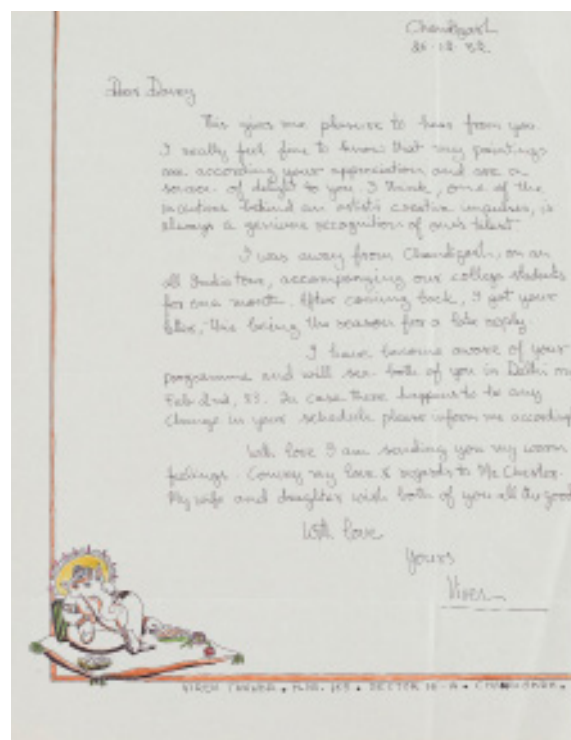 Chandigarh
26.12.82.
Dear Davey
This gives me pleasure to hear from you.
I really feel fine to know that my paintings
are according your appreciation and are a
source of delight to you. I think, one of the
incentives behind an artist's creative impulses, is
always a genuine recognition of one's talent
I was away from Chandigarh, on an
all India tour, accompanying our college students
for one month. After coming back, I got your
letter, this being the reason for a late reply.
I have become aware of your
programme and will see both of you in Delhi on
Feb 2nd, 83. In case there happens to be any
change in your schedule please inform me according
With love I am sending you my warm
feelings. Convey my love & regards to Mr Chester.
My wife and daughter wish both of you all the good
With love
Yours
Viren
VIREN TANWAR • H.NO. 165 • SECTOR • CHANDIGARH •